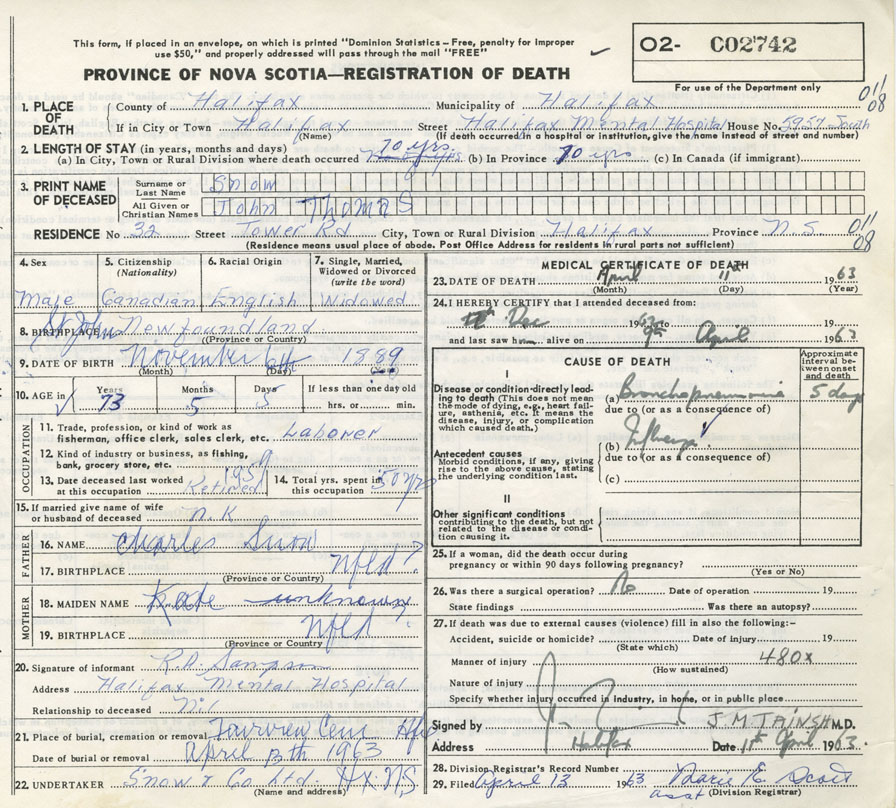 This form, if placed in an envelope, on which is printed "Dominion Statistics - Free, penalty for improper
use $50," and properly addressed will pass through the mail "FREE"
O2- C02742
PROVINCE OF NOVA SCOTIA—REGISTRATION OF DEATH
For use of the Department only
011
08
1. PLACE OF DEATH
County of Halifax Municipality of Halifax
If in City or Town Halifax Street Halifax Mental Hospital House No. 5957 South
(Name) (If death occurred in a hospital or institution, give the name instead of street and number)
2. LENGTH OF STAY (in years, months and days) 70 yrs.
(a) In City, Town or Rural Division where death occurred (b) In Province 70 yrs (c) In Canada (if immigrant)
3. PRINT NAME OF DECEASED
Surname or Last Name Snow
All Given or Christian Names John Thomas
RESIDENCE No 32 Street Tower Rd City, Town or Rural Division Halifax Province N.S
011
08
(Residence means usual place of abode. Post Office Address for residents in rural parts not sufficient)
4. Sex Male
5. Citizenship (Nationality) Canadian
6. Racial Origin English
7. Single, Married, Widowed or Divorced (write the word) Widowed
8. BIRTHPLACE St John Newfoundland
(Province or Country)
9. DATE OF BIRTH November 6th 1889
(Month) (Day) (Year)
10. AGE in Years 73 Months 5 Days 5 If less than one day old
hrs. or min.
OCCUPATION
11. Trade, profession, or kind of work as
fisherman, office clerk, sales clerk, etc. Laborer
12. Kind of industry or business, as fishing,
bank, grocery store, etc.
13. Date deceased last worked
at this occupation 1959 Retired
14. Total yrs. spent in
this occupation 50 yrs
15. If married give name of wife
or husband of deceased N.K
FATHER
16. NAME Charles Snow
17. BIRTHPLACE Nfld ?
(Province or Country)
MOTHER
18. MAIDEN NAME Kate unknown
19. BIRTHPLACE Nfld ?
(Province or Country)
20. Signature of informant R.A. Sampson
Address Halifax Mental Hospital
Relationship to deceased Nil
21. Place of burial, cremation or removal Fairview Cem Hfx
Date of burial or removal April 13th 1963
22. UNDERTAKER Snow & Co Ltd. Hx NS
(Name and address)
MEDICAL CERTIFICATE OF DEATH
23. DATE OF DEATH April 11th 1963
(Month) (Day) (Year)
24. I HEREBY CERTIFY that I attended deceased from:
Dec 1962 to
and last saw h alive on 9th April 1963
CAUSE OF DEATH
Approximate interval between onset and death
I
Disease or condition directly leading to death (This does not mean the mode of dying, e.g., heart failure, asthenia, etc. It means the disease, injury, or complication which caused death.)
(a) Bronchopneumonia 5 days
due to (or as a consequence of)
(b) Influenza
Antecedent causes
Morbid conditions, if any, giving rise to the above cause, stating the underlying condition last.
due to (or as a consequence of)
(c)
II
Other significant conditions
contributing to the death, but not related to the disease or condition causing it.
25. If a woman, did the death occur during
pregnancy or within 90 days following pregnancy?
(Yes or No)
26. Was there a surgical operation? No Date of operation 19
State findings Was there an autopsy?
27. If death was due to external causes (violence) fill in also the following:-
Accident, suicide or homicide? Date of injury 19
(State which)
Manner of injury 480x
(How sustained)
Nature of injury
Specify whether injury occurred in industry, in home, or in public place
Signed by J M TAINSH M.D.
Address Halifax Date 11th April 1963
28. Division Registrar's Record Number
29. Filed April 13 1963 Marie E. Scott
asst (Division Registrar)